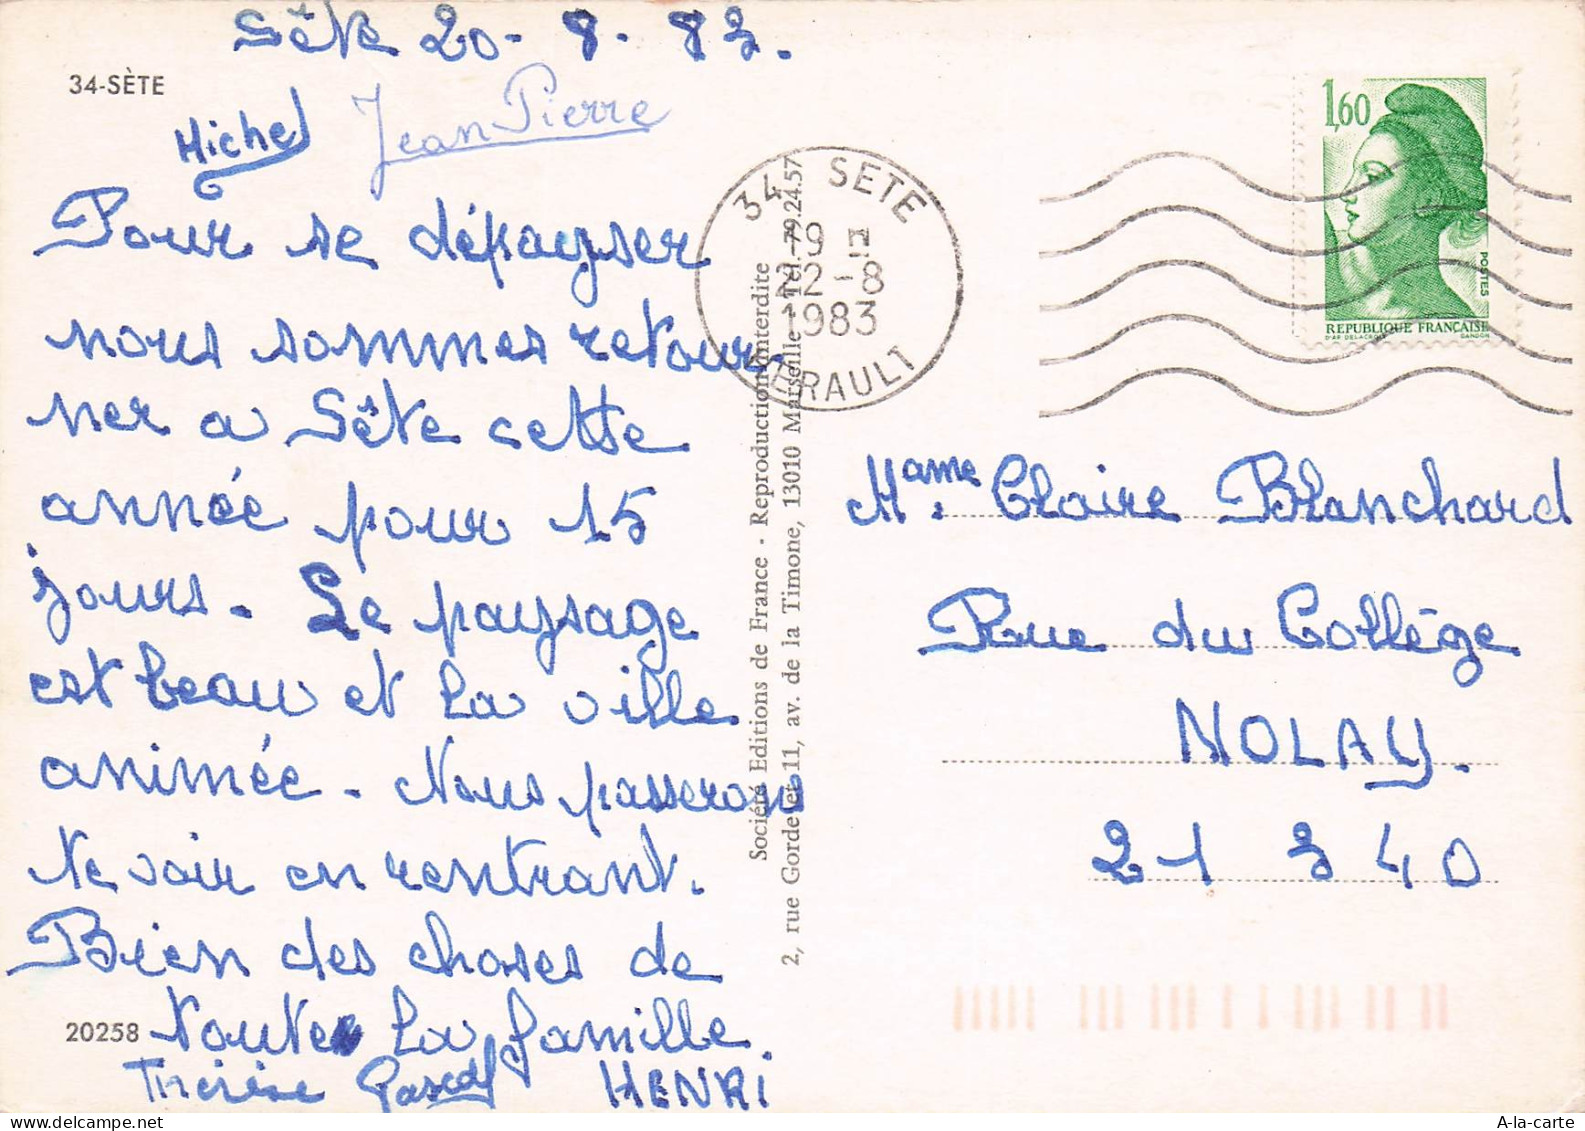 Sète 20-8-83.
34-SÈTE
Michel Jean Pierre
Pour se dépayser
nous sommes retour-
ner a Sète cette
année pour 15
jours. Le paysage
est beau et la ville
animée. Nous passerons
te voir en rentrant.
Bien des choses de
20258 toute la famille
Thérèse Pascal HENRI
Société Editions de France - Reproduction interdite
2, rue Gordet et 11, av. de la Timone, 13010 Marseille Tél. 79.24.57
34 SETE
19 H
22-8
1983
HERAULT
1,60
POSTES
REPUBLIQUE FRANÇAISE
D'AP DELACROIX GANDON
Mame. Claire Blanchard
Rue du Collège
NOLAY.
21 340
A-la-carte